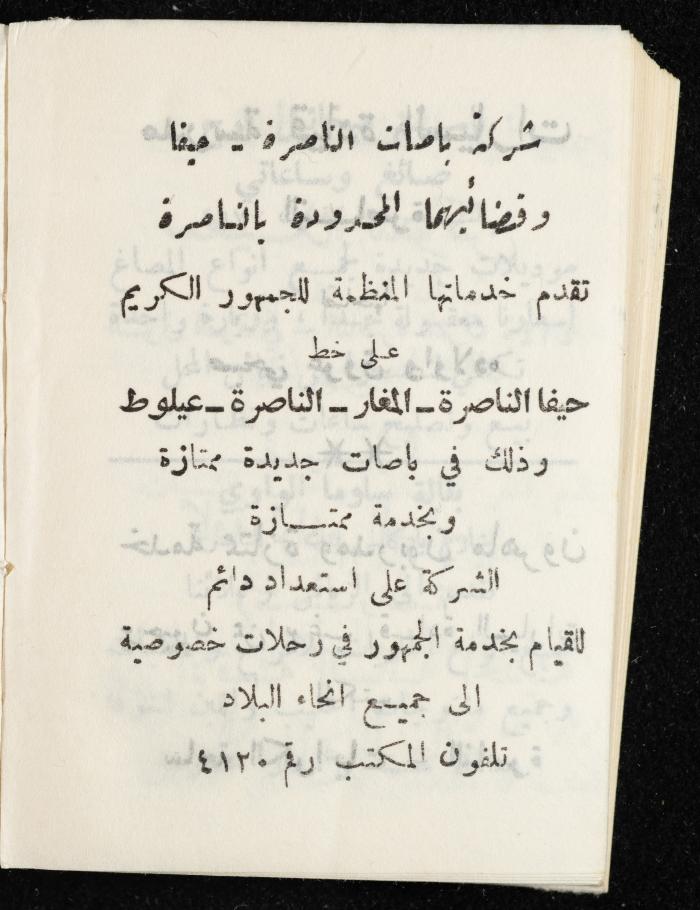 شركة باصات الناصرة - حيفا
وقضائيهما المحدودة بالناصرة
تقدم خدماتها المنظمة للجمهور الكريم
على خط
حيفا الناصرة - المغار - الناصرة - عيلوط
وذلك في باصات جديدة ممتازة
وبخدمة ممتــازة
الشركة على استعداد دائم
للقيام بخدمة الجمهور في رحلات خصوصية
الى جميع انحاء البلاد
تلفون المكتب رقم ٤١٢٠